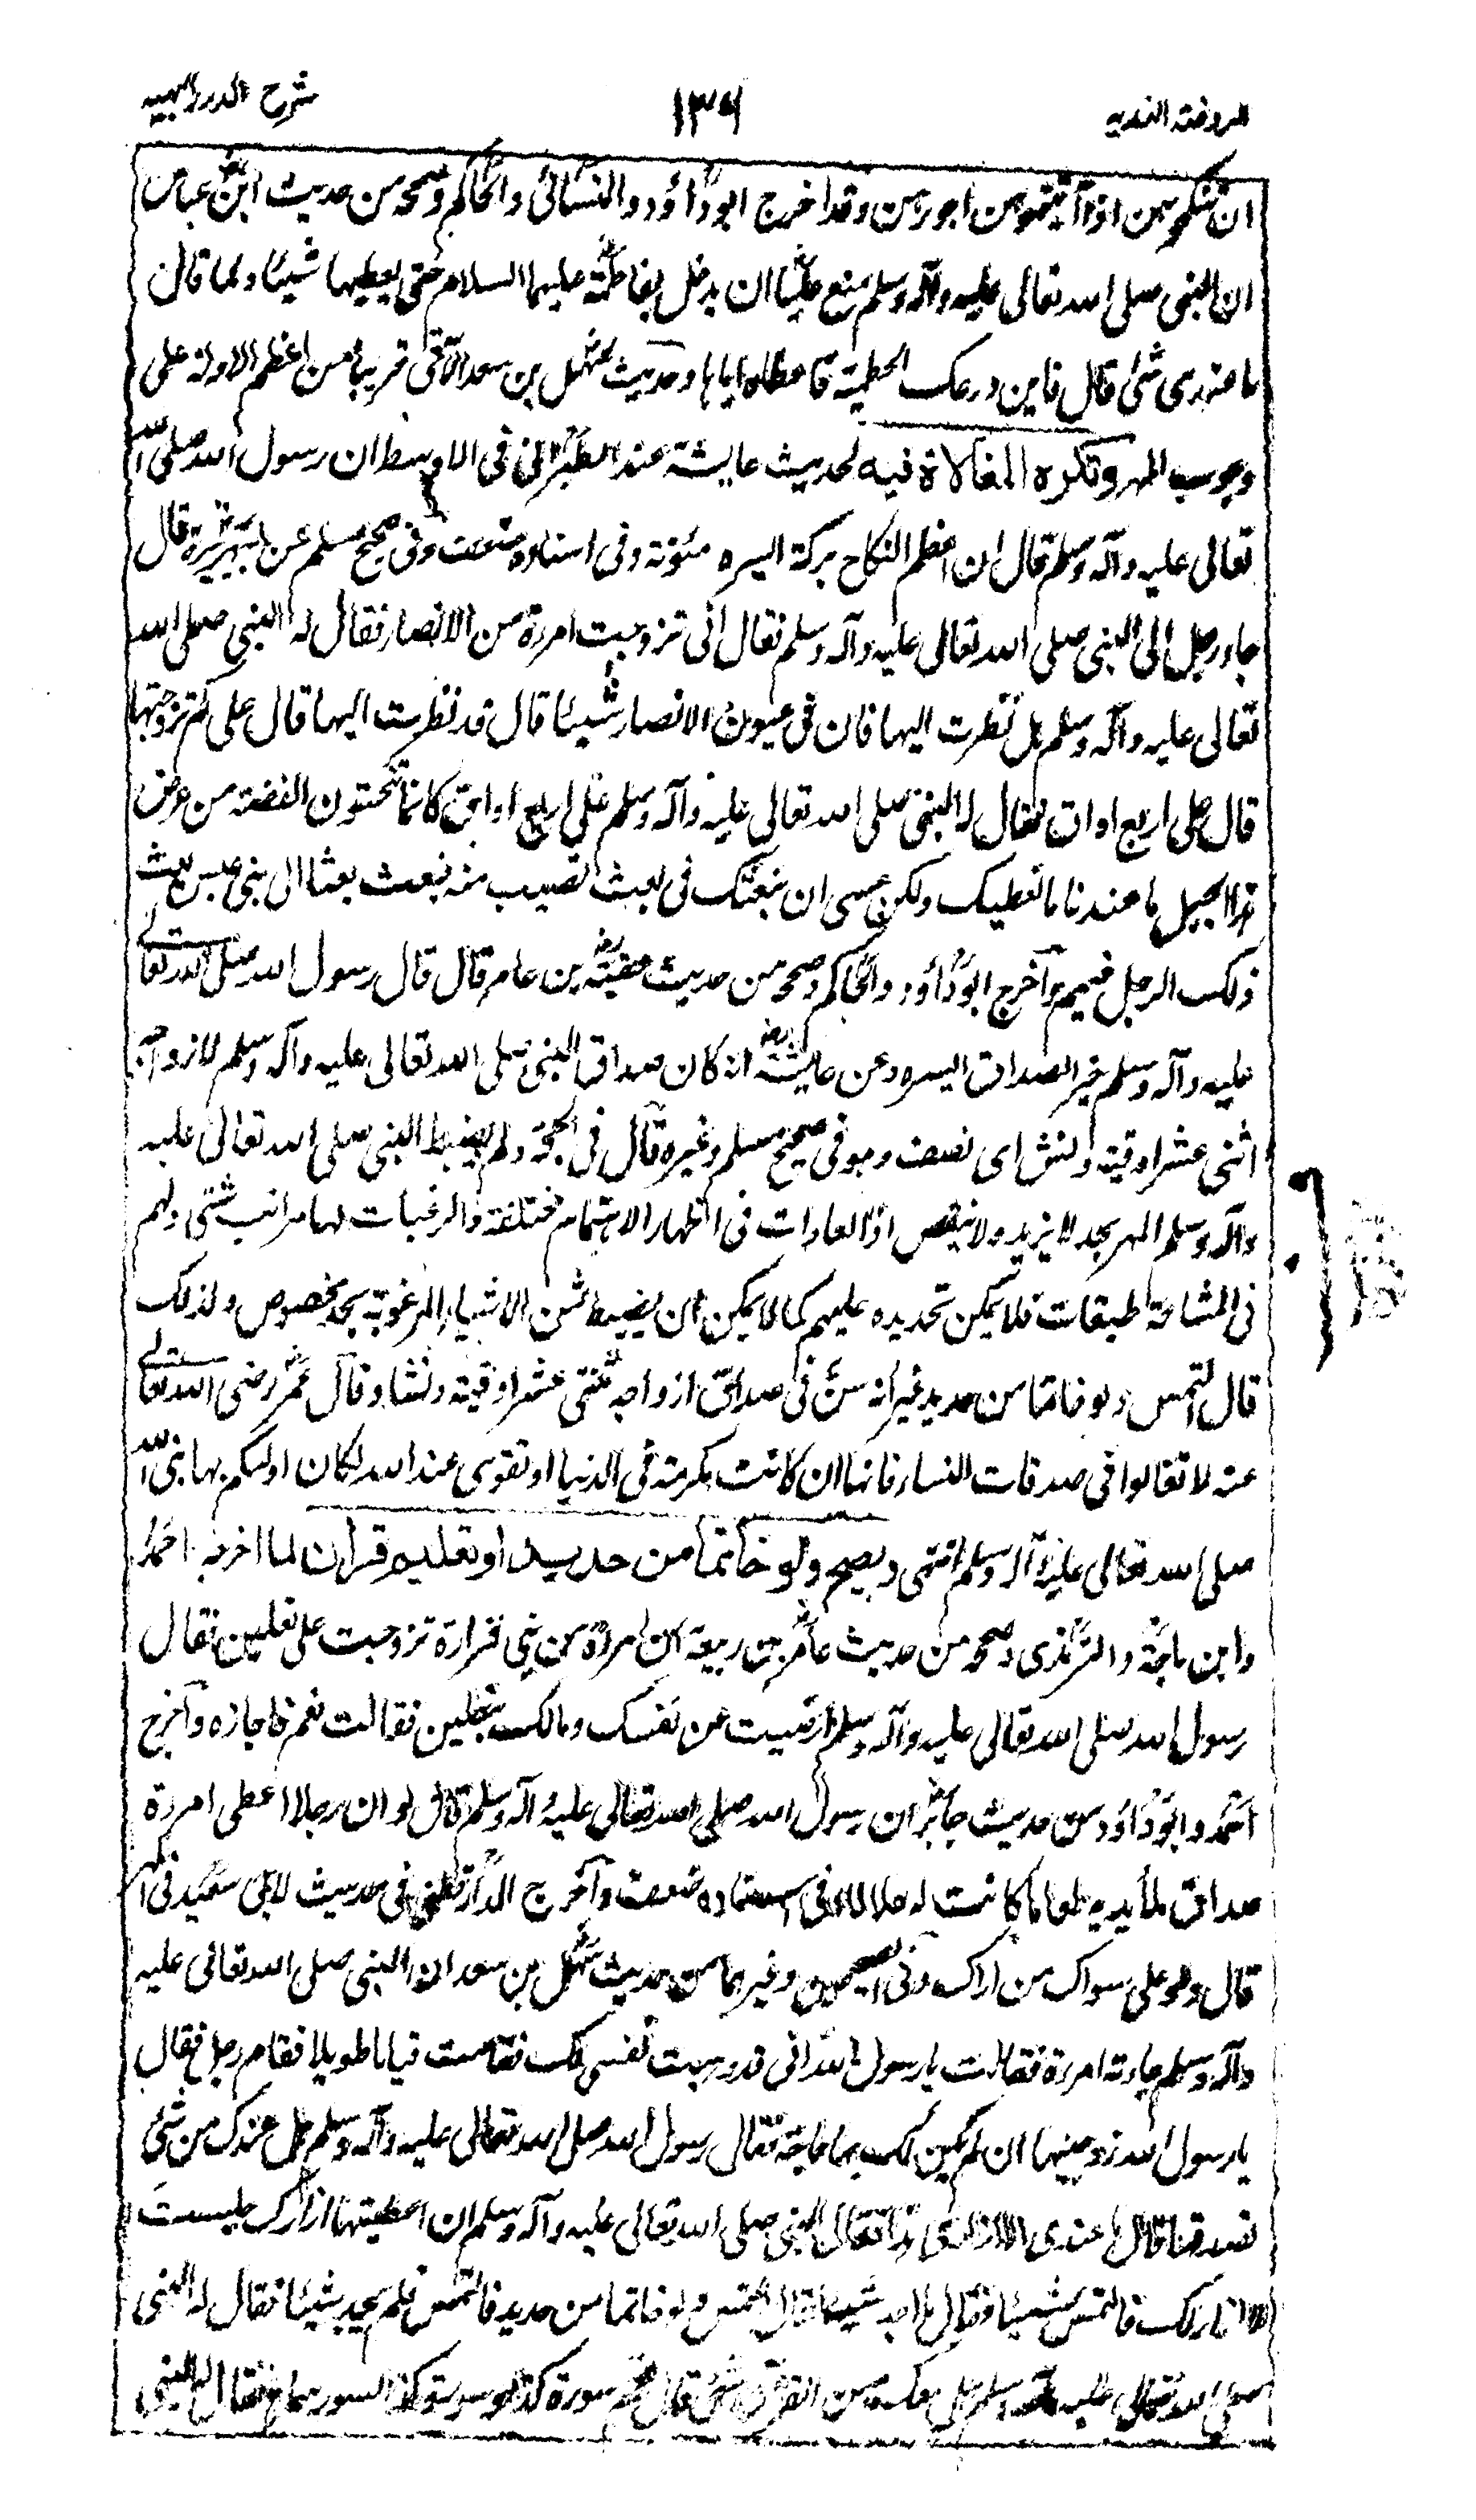 الروضة الندية ١٣٦ شرح الدرر البهية
ان تنكحوهن اذا آتيتموهن اجورهن وقد اخرج ابوداؤد والنسائى والحاكم وصححه من حديث ابن عباس
ان النبى صلى الله تعالى عليه وآله وسلم منع عليّا ان يدخل بفاطمة عليهما السلام حتى يعطيها شيئا ولما قال
ما عندى شئ قال فاين درعك الحطمية فاعطاه اياها وحديث سهل بن سعد الآتى قريبا من اعظم الادلة على
وجوب المهر وتكره المغالاة فيه لحديث عايشة عند الطبرانى فى الاوسط ان رسول الله صلى الله
تعالى عليه وآله وسلم قال ان اعظم النكاح بركة ايسره مئونة وفى اسناده ضعف وفى صحيح مسلم عن ابى هريرة قال
جاء رجل الى النبى صلى الله تعالى عليه وآله وسلم فقال انى تزوجت امرءة من الانصار فقال له النبى صلى الله
تعالى عليه وآله وسلم هل نظرت اليها فان فى عيون الانصار شيئا قال قد نظرت اليها قال على كم تزوجتها
قال على اربع اواق فقال له النبى صلى الله تعالى عليه وآله وسلم على اربع اواق كانما تنحتون الفضة من عرض
هذا الجبل ما عندنا ما نعطيك ولكن عسى ان نبعثك فى بعث تصيب منه فبعث بعثا الى بنى عبس بعث
ذلك الرجل فيهم واخرج ابوداؤد والحاكم وصححه من حديث عقبة بن عامر قال قال رسول الله صلى الله تعالى
عليه وآله وسلم خير الصداق ايسره وعن عايشة انه كان صداق النبى صلى الله تعالى عليه وآله وسلم لازواجه
اثنى عشر اوقية ونش اى نصف وهو فى صحيح مسلم وغيره قال فى الحجة ولم يضبط النبى صلى الله تعالى عليه
وآله وسلم المهر بحد لا يزيد ولا ينقص اذ العادات فى اظهار الاهتمام مختلفة والرغبات لها مراتب شتى ولهم
فى المشاحة طبقات فلا يمكن تحديده عليهم كما لا يمكن ان يضبط ثمن الاشياء المرغوبة بحد مخصوص ولذلك
قال التمس ولو خاتما من حديد غير انه سن فى صداق ازواجه ثنتى عشر اوقية ونشا وقال عمر رضى الله تعالى
عنه لا تغالوا فى صدقات النساء فانها ان كانت مكرمة فى الدنيا او تقوى عند الله لكان اولىكم بها نبى الله
صلى الله تعالى عليه وآله وسلم انتهى ويصح ولو خاتما من حديد او تعليم قرآن لما اخرجه احمد
وابن ماجة والترمذى وصححه من حديث عامر بن ربيعة ان امرءة من بنى فزارة تزوجت على نعلين فقال
رسول الله صلى الله تعالى عليه وآله وسلم ارضيت عن نفسك ومالك بنعلين فقالت نعم فاجازه واخرج
احمد وابوداؤد من حديث جابر ان رسول الله صلى الله تعالى عليه وآله وسلم قال لو ان رجلا اعطى امرءة
صداق ملأ يديه طعاما كانت له حلالا وفى اسناده ضعف واخرج الدارقطنى فى حديث لابى سعيد فى المهر
قال ولو على سواك من اراك وفى الصحيحين وغيرهما من حديث سهل بن سعد ان النبى صلى الله تعالى عليه
وآله وسلم جاءته امرءة فقالت يا رسول الله انى قد وهبت نفسى لك فقامت قياما طويلا فقام رجل فقال
يا رسول الله زوجنيها ان لم يكن لك بها حاجة فقال رسول الله صلى الله تعالى عليه وآله وسلم هل عندك من شئ
تصدقها قال ما عندى الا ازارى هذا فقال النبى صلى الله تعالى عليه وآله وسلم ان اعطيتها ازارك جلست
لا ازار لك فالتمس شيئا فقال ما اجد شيئا فقال التمس ولو خاتما من حديد فالتمس فلم يجد شيئا فقال له النبى
صلى الله تعالى عليه وآله وسلم هل معك من القرآن شئ قال نعم سورة كذا وسورة كذا لسور سماها فقال له النبى